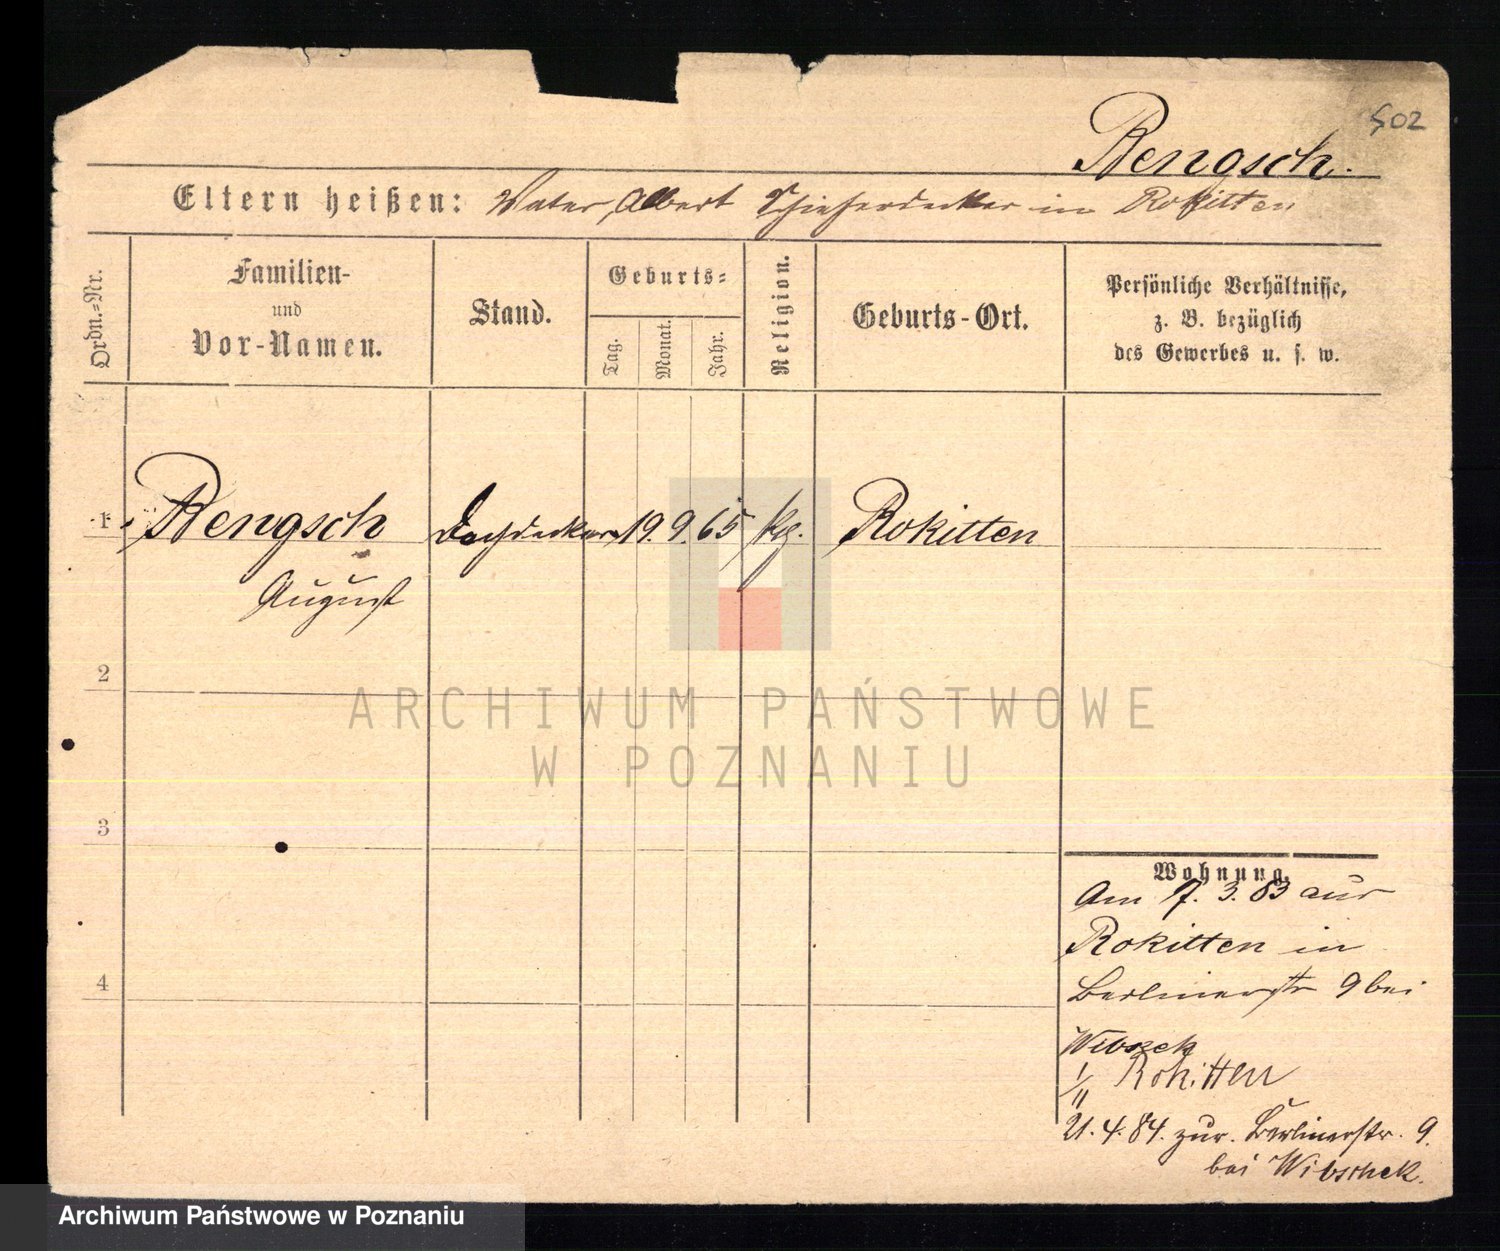 502
Rengsch.
Eltern heißen: Vater, Albert Schieferdecker in Rokitten
Ordn.=Nr.
Familien-
und
Vor-Namen.
Stand.
Geburts=
Tag.
Monat.
Jahr.
Religion.
Geburts-Ort.
Persönliche Verhältnisse,
z. B. bezüglich
des Gewerbes u. s. w.
1 Rengsch Dachdecker 19. 9. 65 Rokitten
August
2
3
4
ARCHIWUM PAŃSTWOWE
W POZNANIU
Wohnung.
Am 7. 3. 83 aus
Rokitten in
Berlinerstr 9 bei
Wibszek
1/11 Rokitten
21. 4. 84. zur. Berlinerstr. 9.
bei Wibschek.
Archiwum Państwowe w Poznaniu